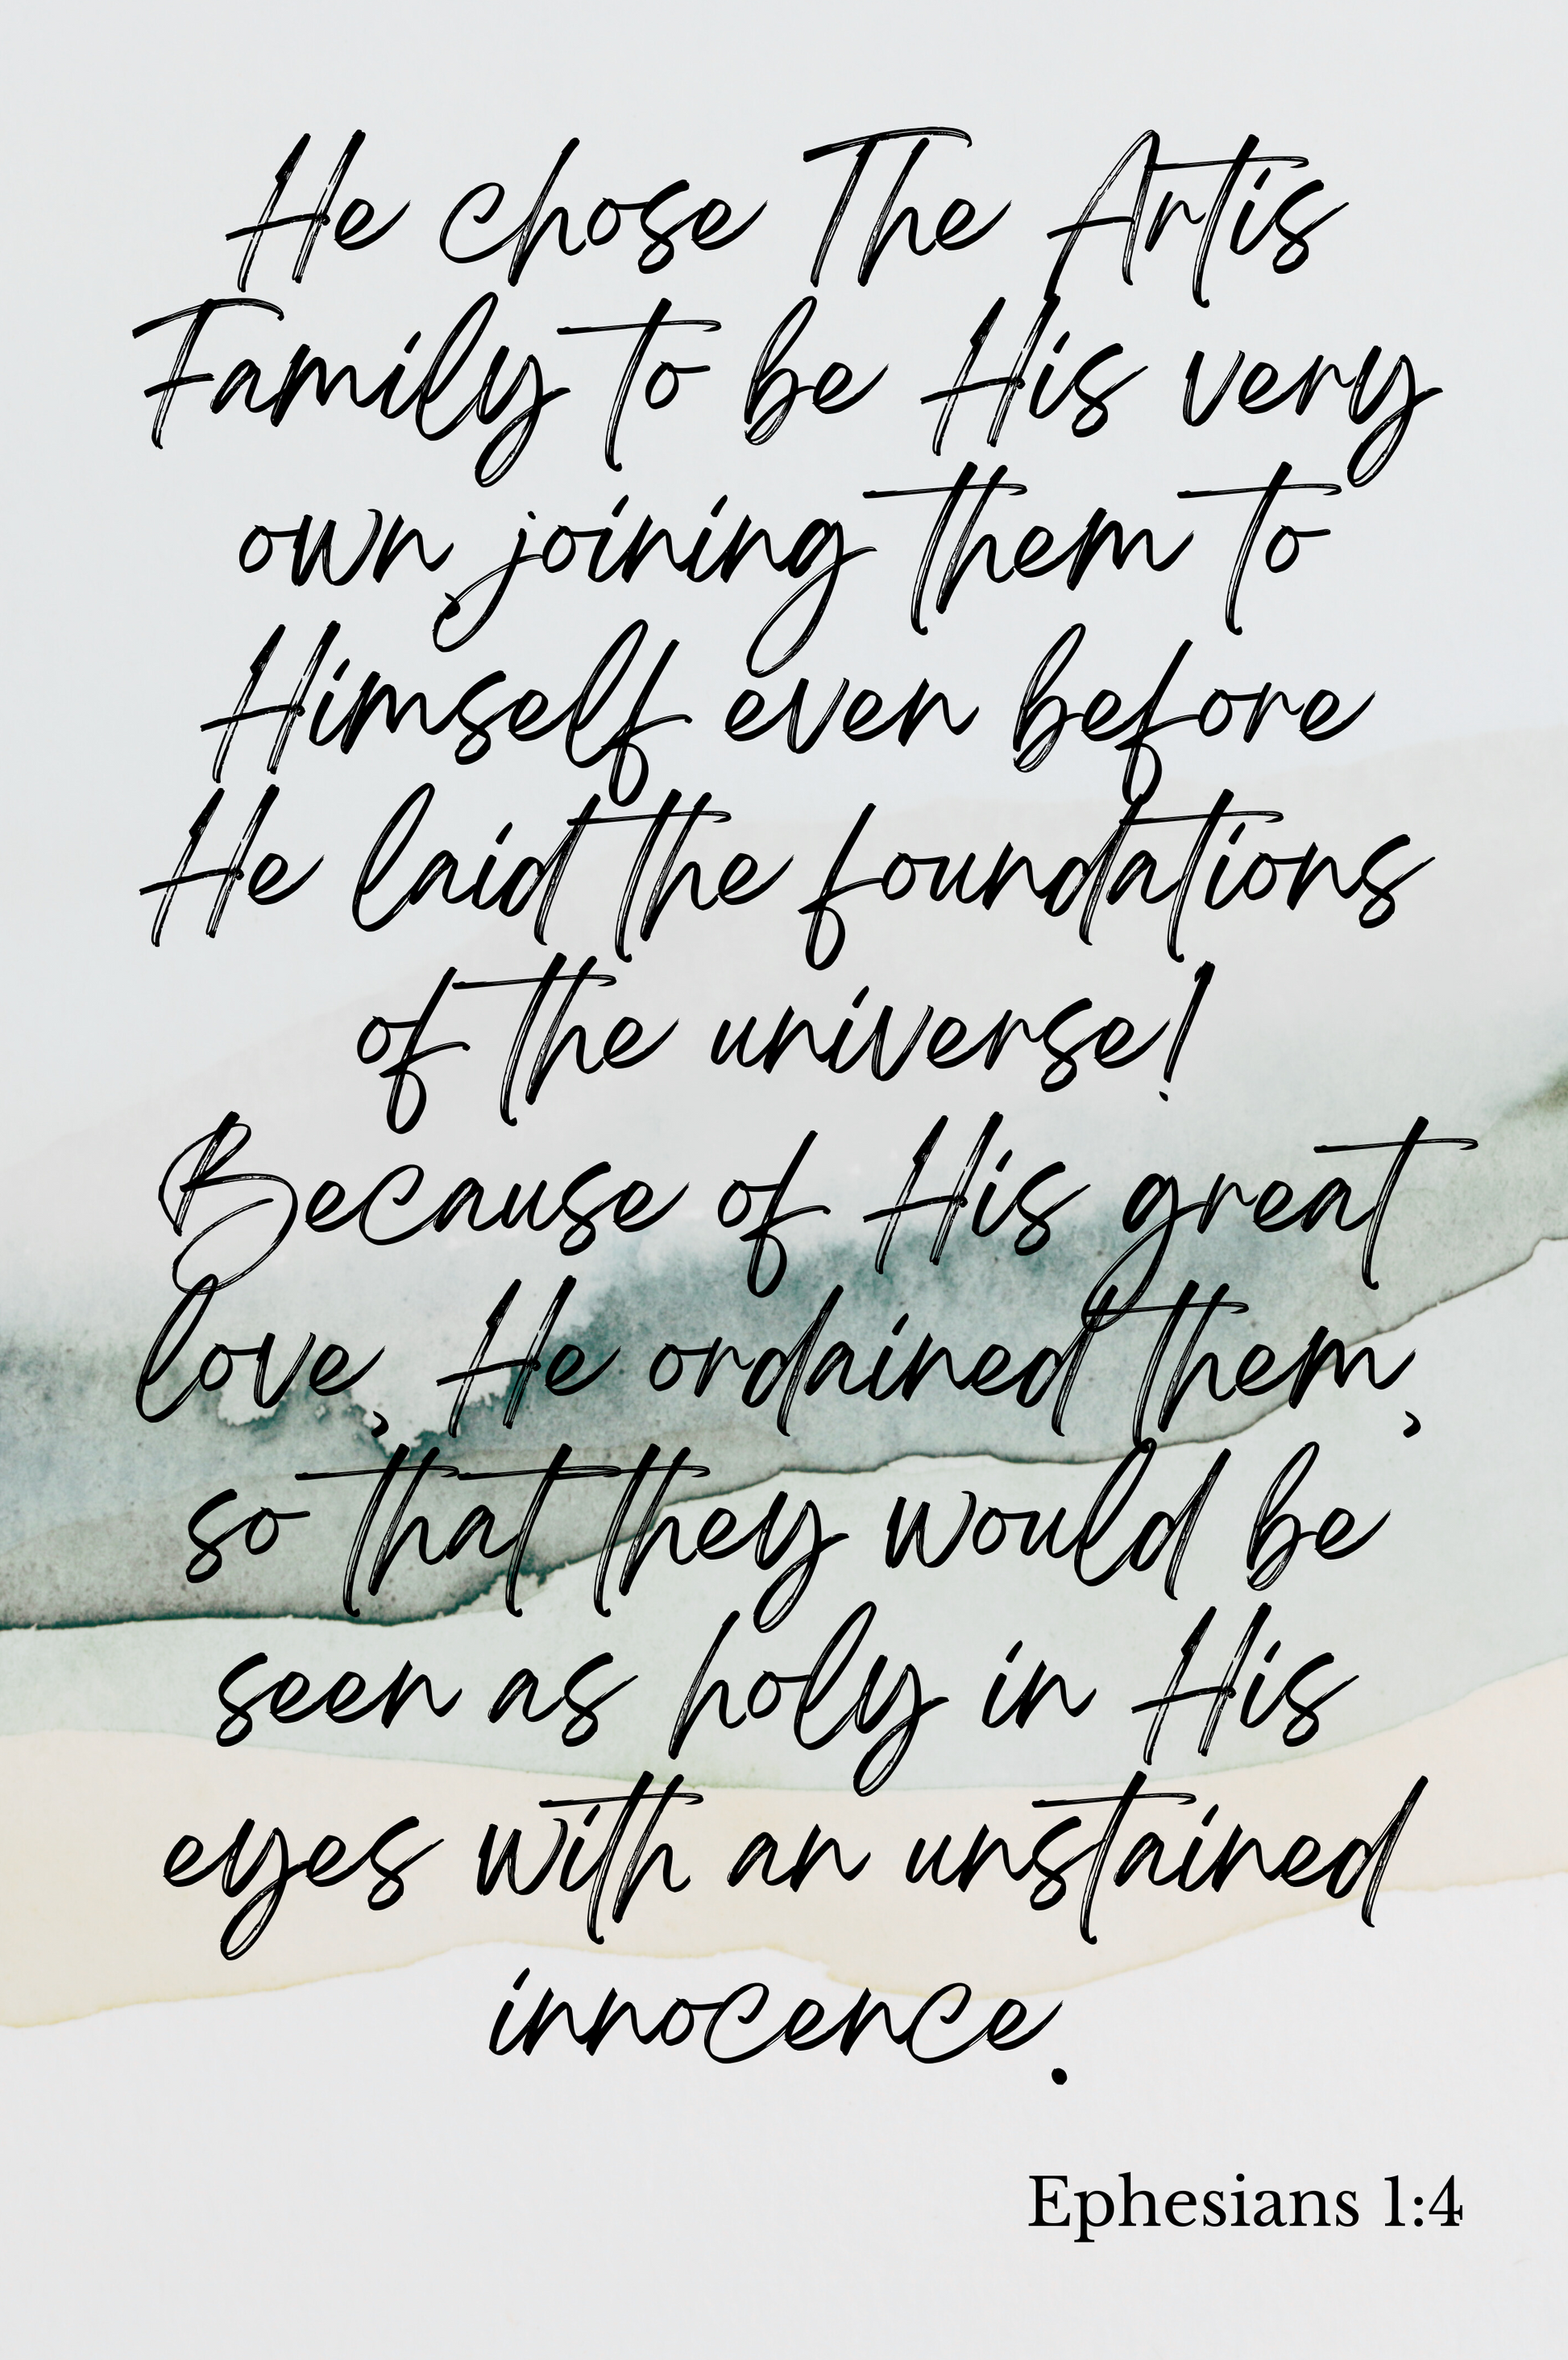 He chose The Artis
Family to be His very
own, joining them to
Himself even before
He laid the foundations
of the universe!
Because of His great
love, He ordained them,
so that they would be
seen as holy in His
eyes with an unstained
innocence.
Ephesians 1:4